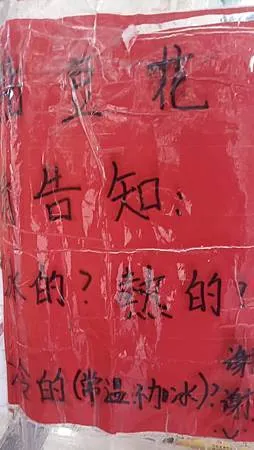 豆花
告知：
冰的？熱的？
冷的(常温不加冰)?
謝謝